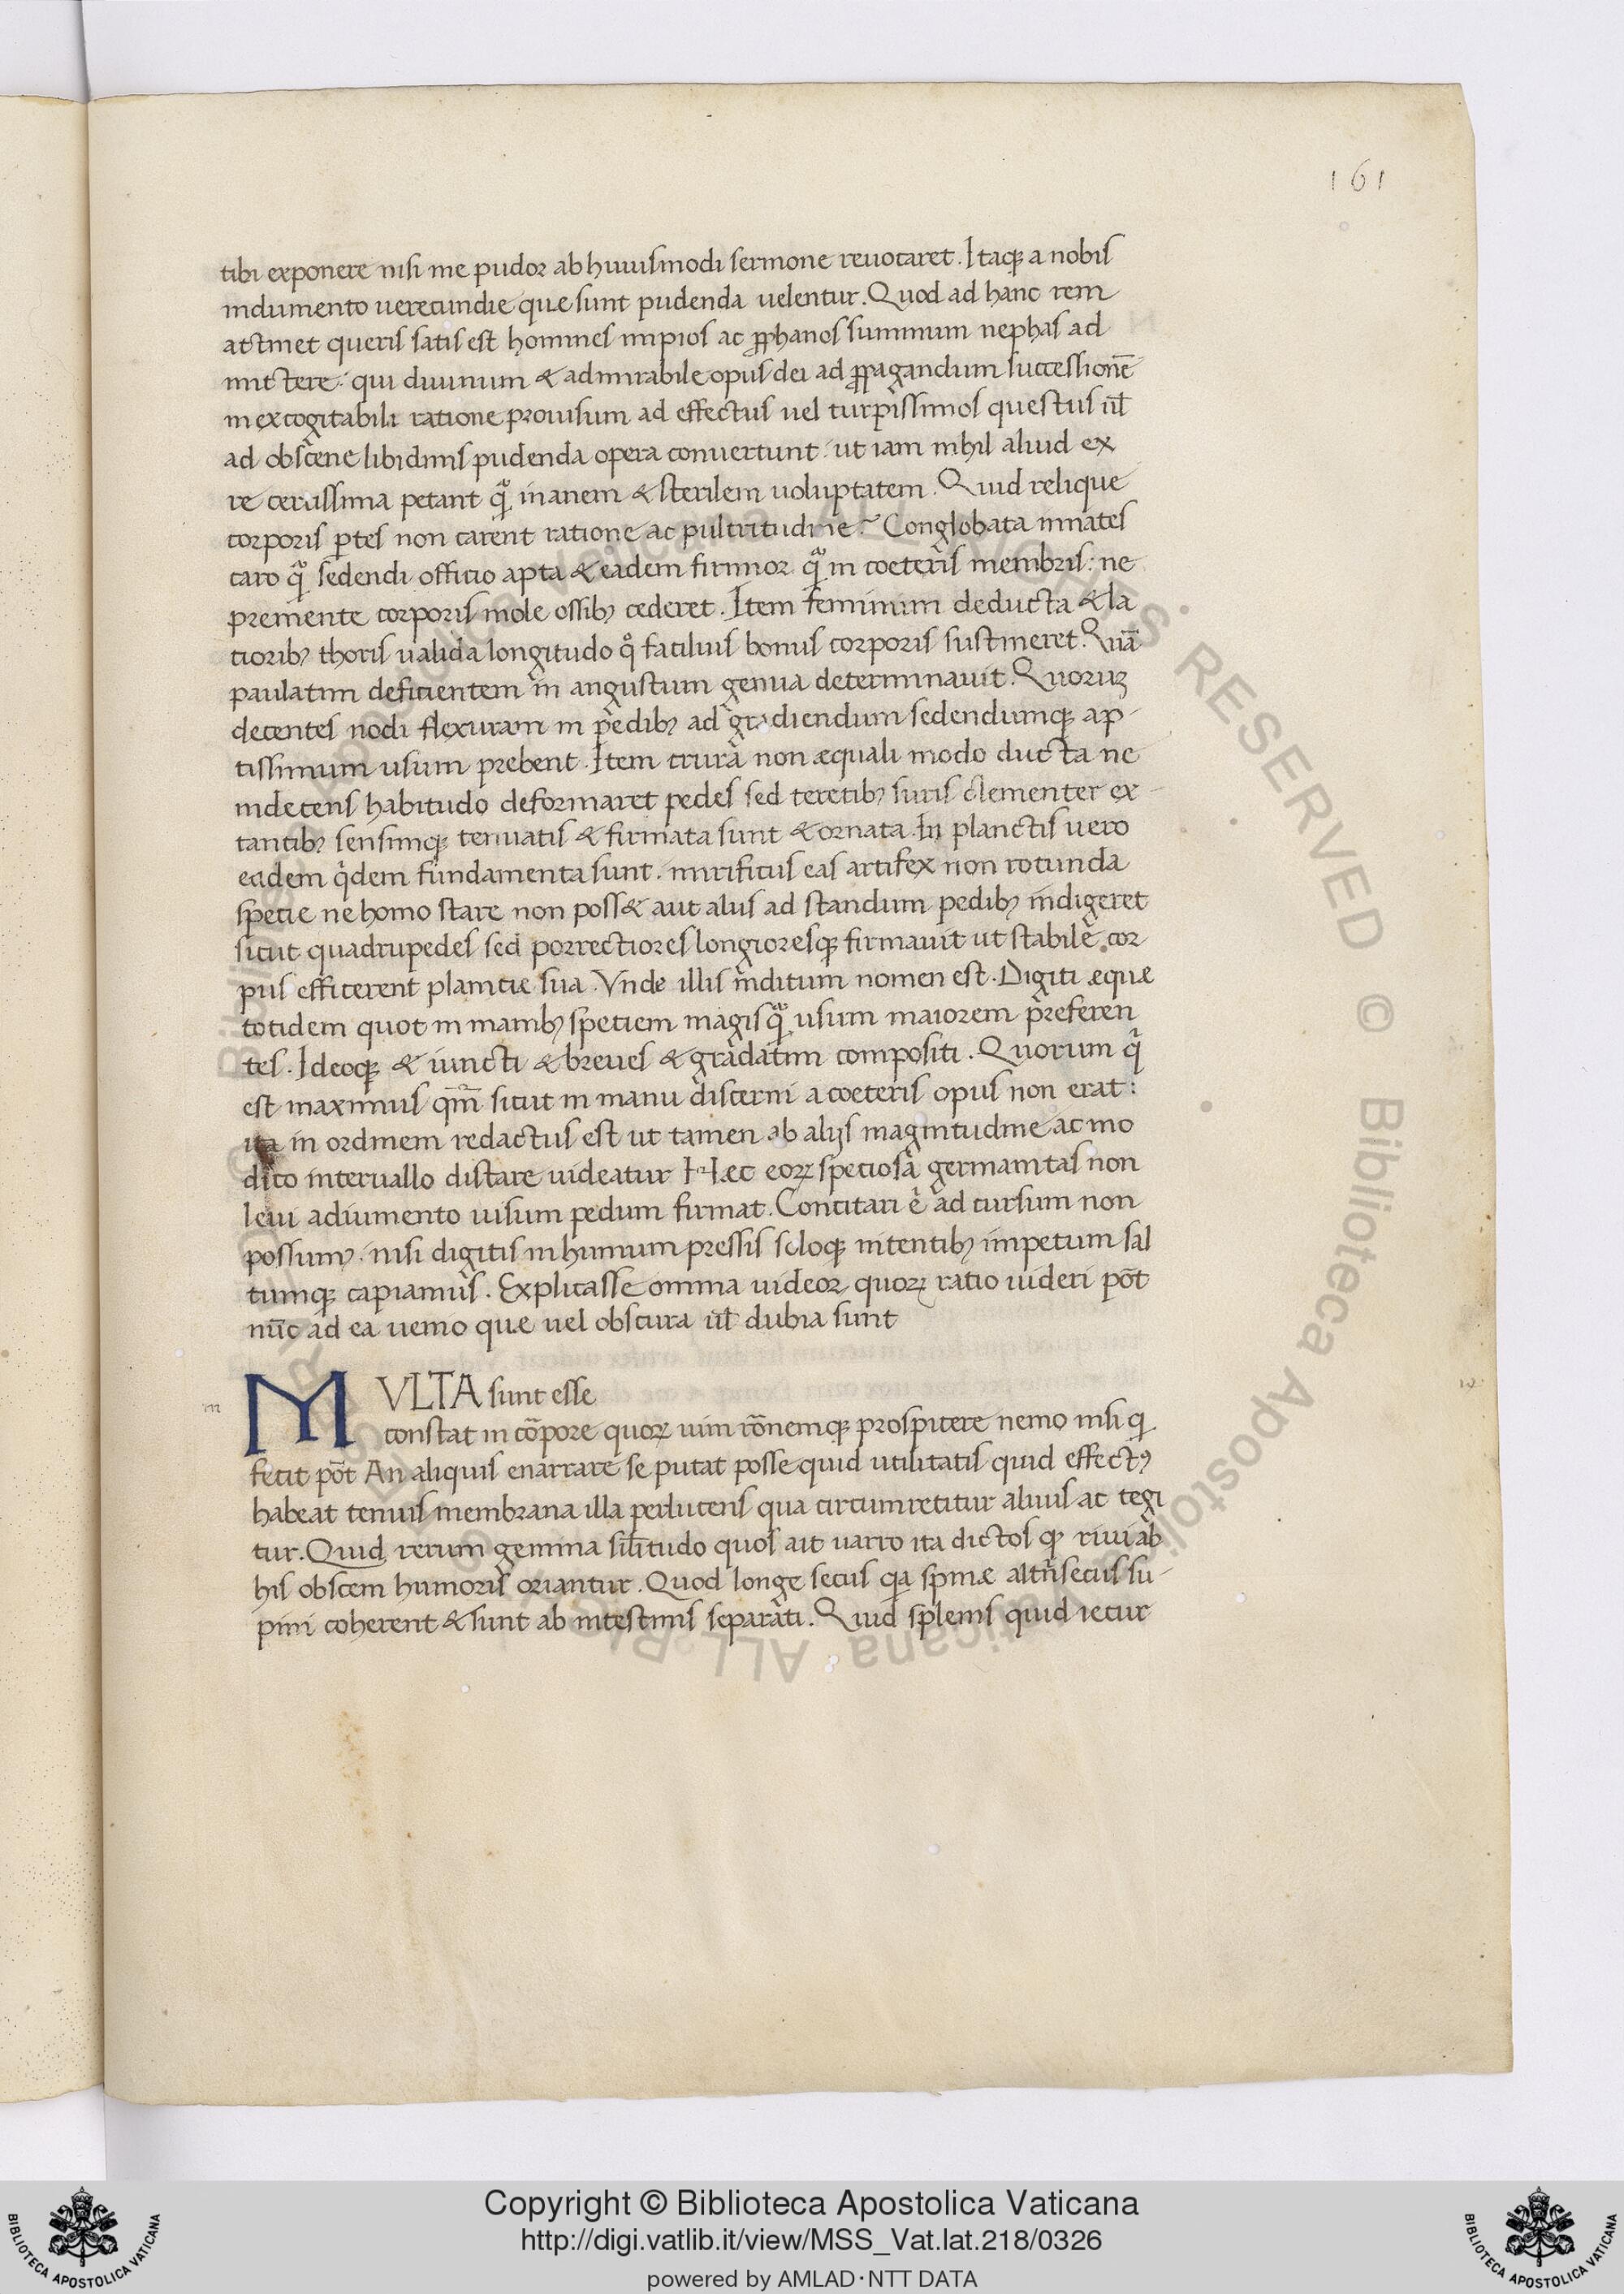 161
tibi exponere nisi me pudor ab huiusmodi sermone reuocaret. Itaqꝫ a nobis
indumento uerecundie que sunt pudenda uelentur. Quod ad hanc rem
attinet queris satis est homines impios ac ꝓphanos summum nephas ad
mittere: qui diuinum & admirabile opus dei ad ꝓpagandum successionē
inexcogitabili ratione prouisum ad effectus uel turpissimos questus ul̄
ad obscene libidinis pudenda opera conuertunt. ut iam nihil aliud ex
re cerissima petant qͣ̃ inanem & sterilem uoluptatem. Quid relique
corporis ꝑtes non carent ratione ac pulcritudine? Conglobata innates
caro qͣ̃ sedendi officio apta & eadem firmior qͣ̃ in coeteris membris: ne
premente corporis mole ossibꝰ cederet. Item feminum deducta & la
tioribꝰ thoris ualida longitudo qͦ facilius honus corporis sustineret. Quā
paulatim deficientem in angustum genua determinauit. Quoruꝫ
decentes nodi flexuram in pedibꝰ ad gradiendum sedendumqꝫ ap-
tissimum usum prebent. Item crura non æquali modo ducta ne
indecens habitudo deformaret pedes sed teretibꝰ suris clementer ex-
tantibꝰ sensimqꝫ tenuatis & firmata sunt & ornata. In planctis uero
eadem qͥdem fundamenta sunt. mirificus eas artifex non rotunda
specie ne homo stare non poss& aut aliis ad standum pedibꝰ indigeret
sicut quadrupedes sed porrectiores longioresqꝫ firmauit ut stabile cor
pus efficerent planicie sua. Vnde illis inditum nomen est. Digiti æque
totidem quot in manibꝰ speciem magis qͣ̃ usum maiorem preferen
tes. Ideoqꝫ & iuncti & breues & gradatim compositi. Quorum qͥ
est maximus qm̄ sicut in manu discerni a coeteris opus non erat:
ita in ordinem redactus est ut tamen ab alijs magnitudine ac mo
dico interuallo distare uideatur Hæc eoꝝ speciosa germanitas non
leui adiumento uisum pedum firmat. Concitari ē ad cursum non
possumꝰ. nisi digitis in humum pressis soloqꝫ nitentibꝰ impetum sal
tumqꝫ capiamus. Explicasse omnia uideor quoꝝ ratio uideri pōt
nūc ad ea uenio que uel obscura ul̄ dubia sunt
m
MVLTA sunt esse
constat in cōpore quoꝝ uim rōnemqꝫ prospicere nemo nisi qͥ
fecit pōt An aliquis enarrare se putat posse quid utilitatis quid effectꝰ
habeat tenuis membrana illa perlucens qua circumretitur aluus ac tegi
tur. Quid rerum gemina sil̄itudo quos ait uarro ita dictos qꝫ riui ab
his obsceni humoris oriantur. Quod longe secus qa spinæ altr̄secus su-
pini coherent & sunt ab intestinis separati. Quid splenis quid iecur
Copyright © Biblioteca Apostolica Vaticana
http://digi.vatlib.it/view/MSS_Vat.lat.218/0326
powered by AMLAD·NTT DATA